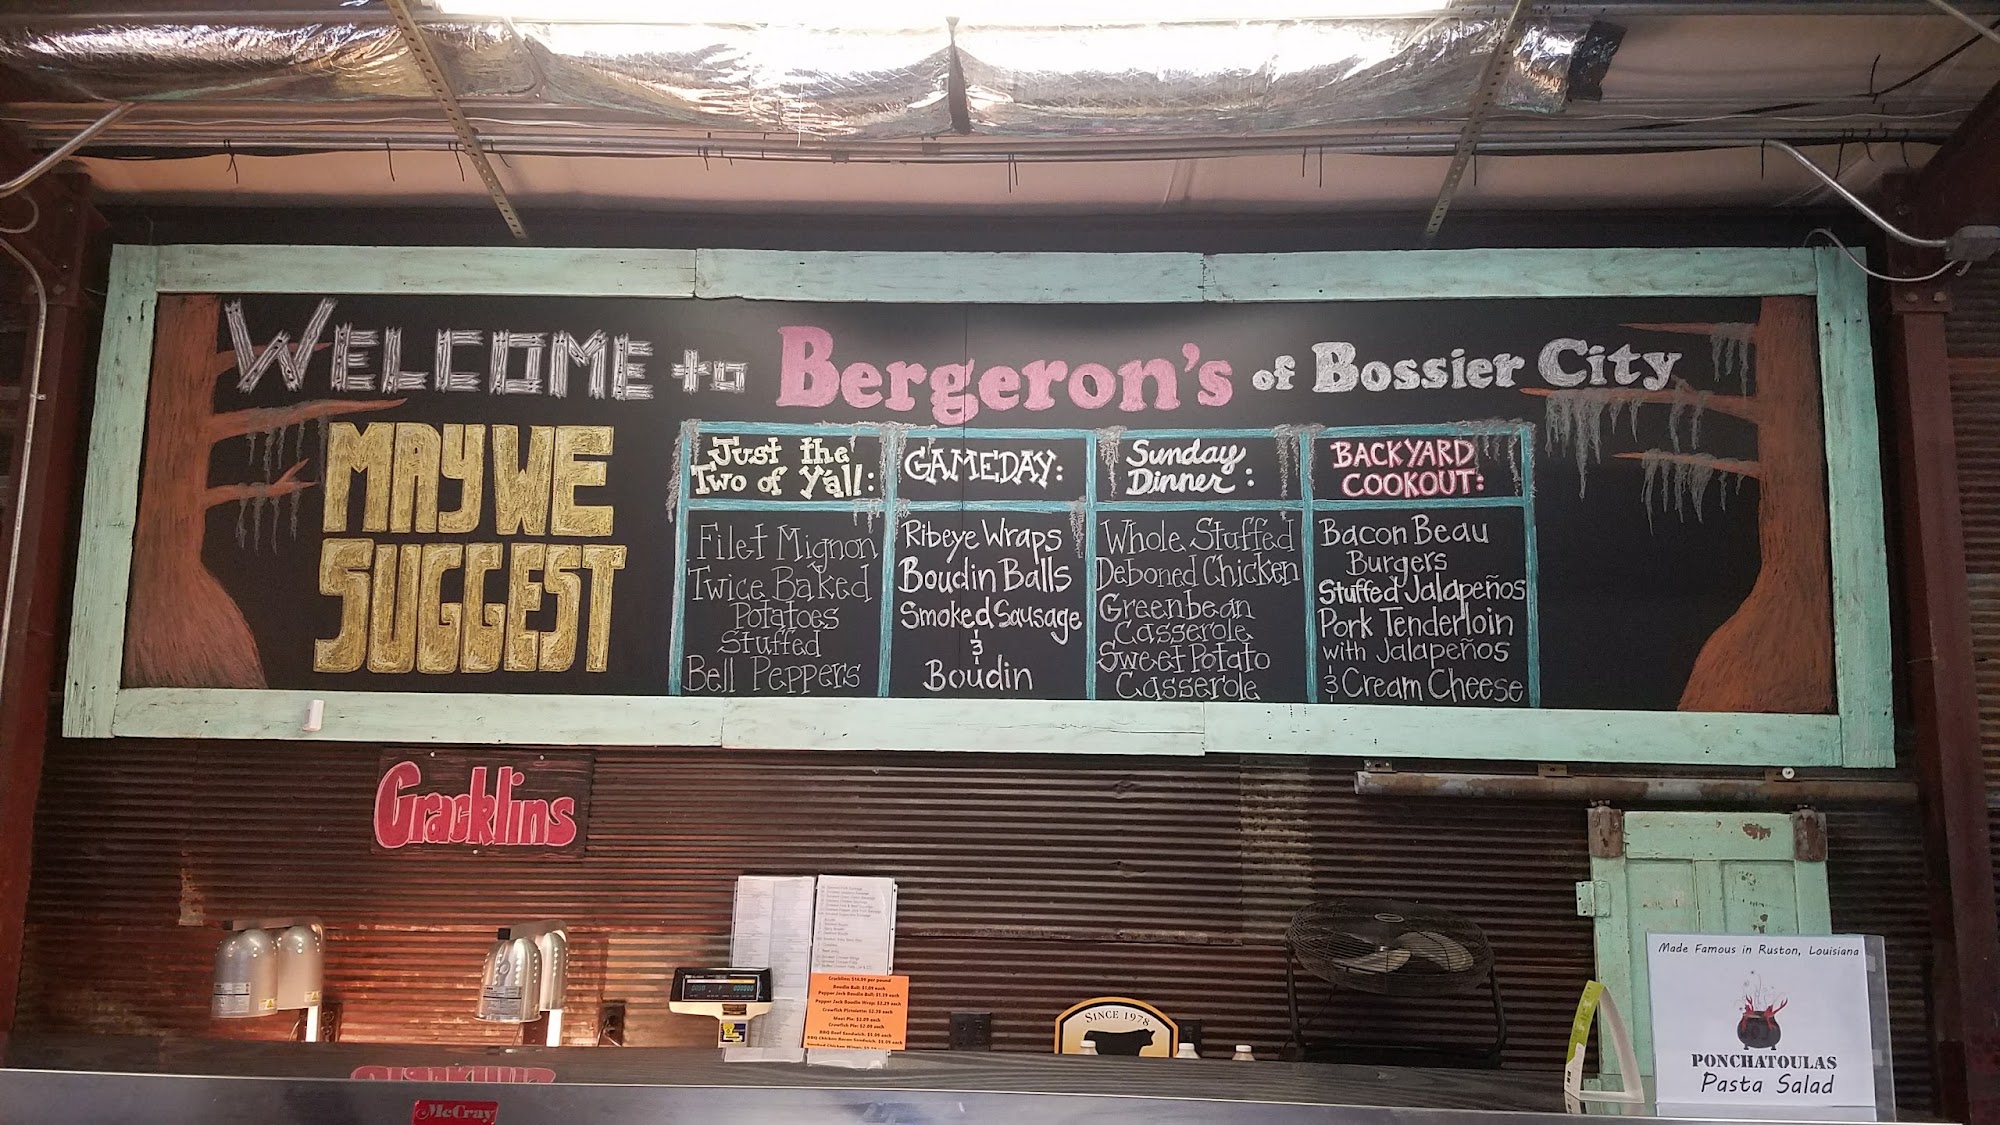 WELCOME to Bergeron's of Bossier City
MAY WE
SUGGEST
Just the
Two of Y'all:
Filet Mignon
Twice Baked
Potatoes
Stuffed
Bell Peppers
GAMEDAY:
Ribeye Wraps
Boudin Balls
Smoked Sausage
&
Boudin
Sunday
Dinner:
Whole Stuffed
Deboned Chicken
Greenbean
Casserole
Sweet Potato
Casserole
BACKYARD
COOKOUT:
Bacon Beau
Burgers
Stuffed Jalapeños
Pork Tenderloin
with Jalapeños
& Cream Cheese
Cracklins
Cracklins: $16.99 per pound
Boudin Ball: $1.09 each
Pepper Jack Boudin Ball: $1.19 each
Pepper Jack Boudin Wrap: $3.29 each
Crawfish Pistolette: $2.39 each
Meat Pie: $2.09 each
Crawfish Pie: $2.09 each
BBQ Beef Sandwich: $5.09 each
BBQ Chicken Bacon Sandwich: $5.09 each
SINCE 1978
Made Famous in Ruston, Louisiana
PONCHATOULAS
Pasta Salad
McCray